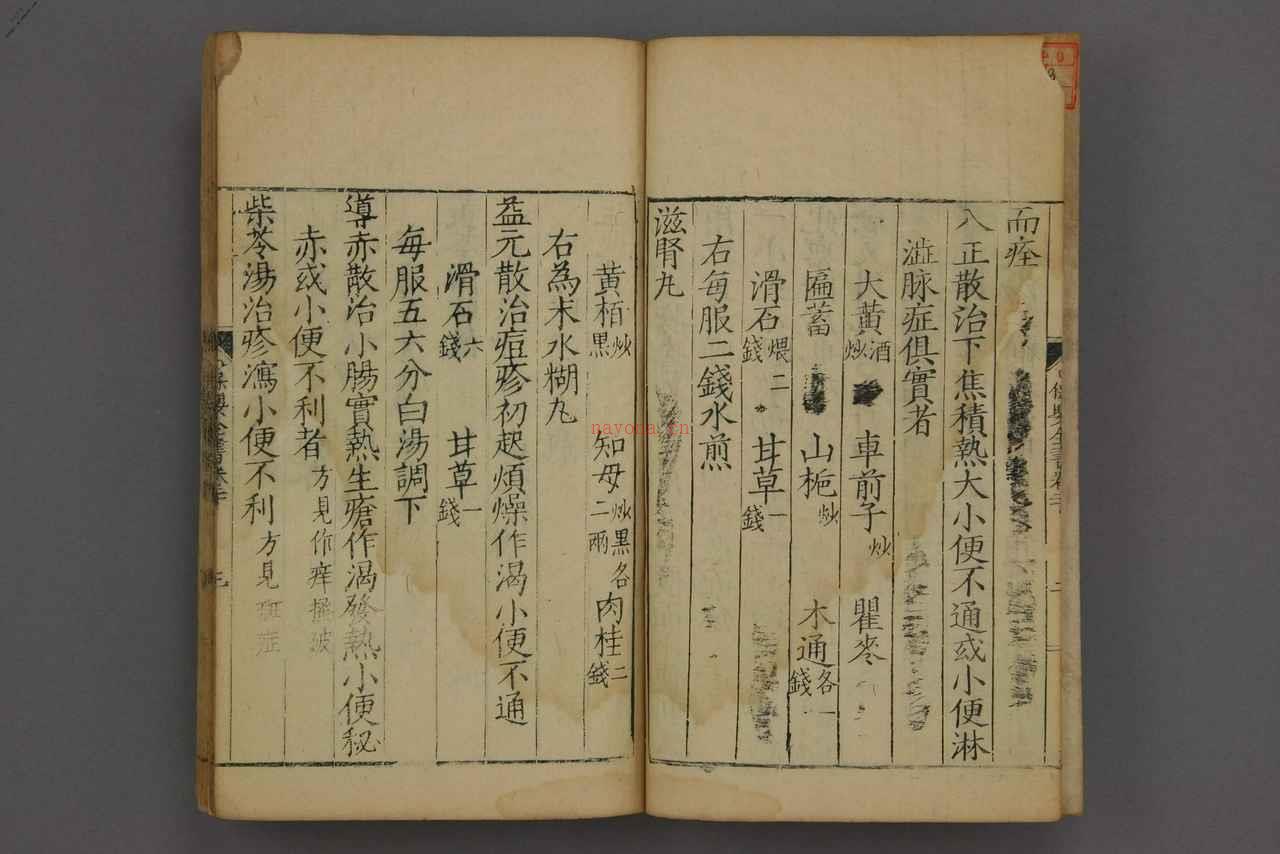 而痊
八正散治下焦積熱大小便不通或小便淋
澁脉症俱實者
大黃酒炒 車前子炒 瞿麥
匾蓄 山梔炒 木通各一錢
滑石煨二錢 甘草一錢
右每服二錢水煎
滋腎丸
黃栢炒黑 知母炒黑各二兩 肉桂二錢
右為末水糊丸
益元散治痘疹初起煩燥作渴小便不通
滑石六錢 甘草一錢
每服五六分白湯調下
導赤散治小腸實熱生瘡作渴發熱小便秘
赤或小便不利者方見作痒搔破
柴苓湯治疹瀉小便不利方見斑症
nayona.cn